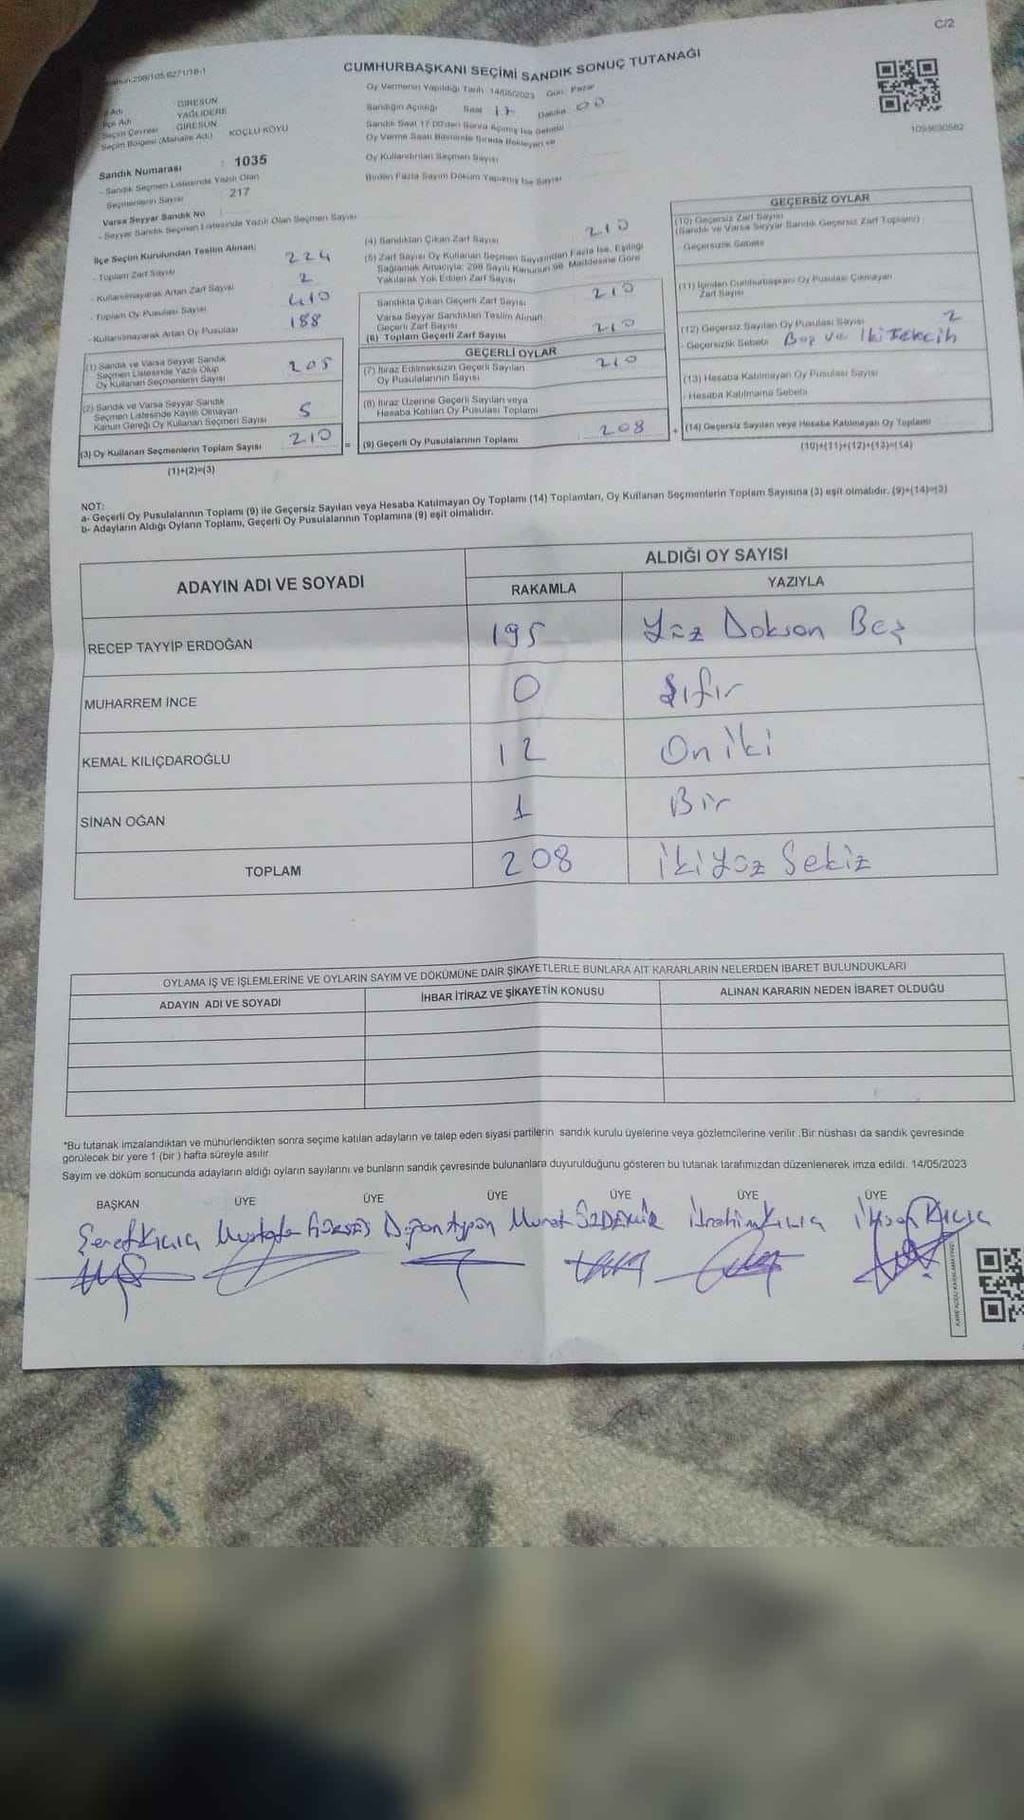 C/2
CUMHURBAŞKANI SEÇİMİ SANDIK SONUÇ TUTANAĞI
Oy Vermenin Yapıldığı Tarih 14/05/2023 Gün: Pazar
İl Adı GİRESUN
İlçe Adı YAĞLIDERE
Seçim Çevresi GİRESUN
Seçim Bölgesi (Mahalle Adı) KOÇLU KÖYÜ
Sandığın Açıldığı Saat 17 Dakika 00
Oy Kullandırılan Seçmen Sayısı
Birden Fazla Sayım Döküm Yapılmış İse Sayısı
1099630562
Sandık Numarası : 1035
- Sandık Seçmen Listesinde Yazılı Olan
Seçmenlerin Sayısı : 217
Varsa Seyyar Sandık No
- Seyyar Sandık Seçmen Listesinde Yazılı Olan Seçmen Sayısı
İlçe Seçim Kurulundan Teslim Alınan;
- Toplam Zarf Sayısı 224
- Kullanılmayarak Artan Zarf Sayısı 2
- Toplam Oy Pusulası Sayısı 410
- Kullanılmayarak Artan Oy Pusulası 188
(1) Sandık ve Varsa Seyyar Sandık
Seçmen Listesinde Yazılı Olup
Oy Kullanan Seçmenlerin Sayısı 205
(2) Sandık ve Varsa Seyyar Sandık
Seçmen Listesinde Kayıtlı Olmayan
Kanun Gereği Oy Kullanan Seçmen Sayısı 5
(3) Oy Kullanan Seçmenlerin Toplam Sayısı 210
(1)+(2)=(3)
(4) Sandıktan Çıkan Zarf Sayısı 210
(5) Zarf Sayısı Oy Kullanan Seçmen Sayısından Fazla İse, Eşitliği
Sağlamak Amacıyla; 298 Sayılı Kanunun 98. Maddesine Göre
Yakılarak Yok Edilen Zarf Sayısı
Sandıkta Çıkan Geçerli Zarf Sayısı 210
Varsa Seyyar Sandıktan Teslim Alınan
Geçerli Zarf Sayısı
(6) Toplam Geçerli Zarf Sayısı 210
GEÇERLİ OYLAR
(7) İtiraz Edilmeksizin Geçerli Sayılan
Oy Pusulalarının Sayısı 210
(8) İtiraz Üzerine Geçerli Sayılan veya
Hesaba Katılan Oy Pusulası Toplamı
(9) Geçerli Oy Pusulalarının Toplamı 208
GEÇERSİZ OYLAR
(10) Geçersiz Zarf Sayısı
(Sandık ve Varsa Seyyar Sandık Geçersiz Zarf Toplamı)
- Geçersizlik Sebebi
(11) İçinden Cumhurbaşkanı Oy Pusulası Çıkmayan
Zarf Sayısı
(12) Geçersiz Sayılan Oy Pusulası Sayısı 2
- Geçersizlik Sebebi Boş ve İki Tercih
(13) Hesaba Katılmayan Oy Pusulası Sayısı
- Hesaba Katılmama Sebebi
+ (14) Geçersiz Sayılan veya Hesaba Katılmayan Oy Toplamı
(10)+(11)+(12)+(13)=(14)
NOT:
a- Geçerli Oy Pusulalarının Toplamı (9) ile Geçersiz Sayılan veya Hesaba Katılmayan Oy Toplamı (14) Toplamları, Oy Kullanan Seçmenlerin Toplam Sayısına (3) eşit olmalıdır. (9)+(14)=(3)
b- Adayların Aldığı Oyların Toplamı, Geçerli Oy Pusulalarının Toplamına (9) eşit olmalıdır.
ADAYIN ADI VE SOYADI
ALDIĞI OY SAYISI
RAKAMLA YAZIYLA
RECEP TAYYİP ERDOĞAN 195 Yüz Doksan Beş
MUHARREM İNCE 0 Sıfır
KEMAL KILIÇDAROĞLU 12 On iki
SİNAN OĞAN 1 Bir
TOPLAM 208 iki yüz Sekiz
OYLAMA İŞ VE İŞLEMLERİNE VE OYLARIN SAYIM VE DÖKÜMÜNE DAİR ŞİKAYETLERLE BUNLARA AİT KARARLARIN NELERDEN İBARET BULUNDUKLARI
ADAYIN ADI VE SOYADI İHBAR İTİRAZ VE ŞİKAYETİN KONUSU ALINAN KARARIN NEDEN İBARET OLDUĞU
*Bu tutanak imzalandıktan ve mühürlendikten sonra seçime katılan adayların ve talep eden siyasi partilerin sandık kurulu üyelerine veya gözlemcilerine verilir .Bir nüshası da sandık çevresinde
görülecek bir yere 1 (bir ) hafta süreyle asılır
Sayım ve döküm sonucunda adayların aldığı oyların sayılarını ve bunların sandık çevresinde bulunanlara duyurulduğunu gösteren bu tutanak tarafımızdan düzenlenerek imza edildi. 14/05/2023
BAŞKAN ÜYE ÜYE ÜYE ÜYE ÜYE ÜYE
Şeref Kılıç Mustafa Murat ÖZDEMİR İbrahim Kılıç